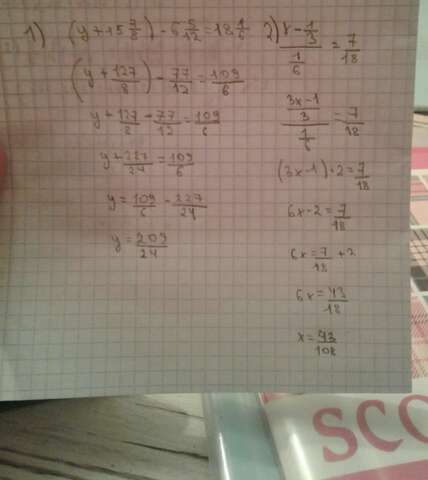 1) (y + 15 7/8) - 6 5/12 = 18 1/6
(y + 127/8) - 77/12 = 109/6
y + 127/8 - 77/12 = 109/6
y + 227/24 = 109/6
y = 109/6 - 227/24
y = 209/24
2) x - 1/3 / 1/6 = 7/18
3x-1/3 / 1/6 = 7/18
(3x-1)·2 = 7/18
6x-2 = 7/18
6x = 7/18 + 2
6x = 43/18
x = 43/108
SCO